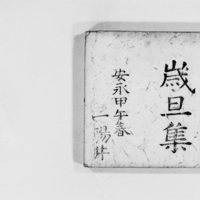 歳旦集
安永甲午春
一陽井